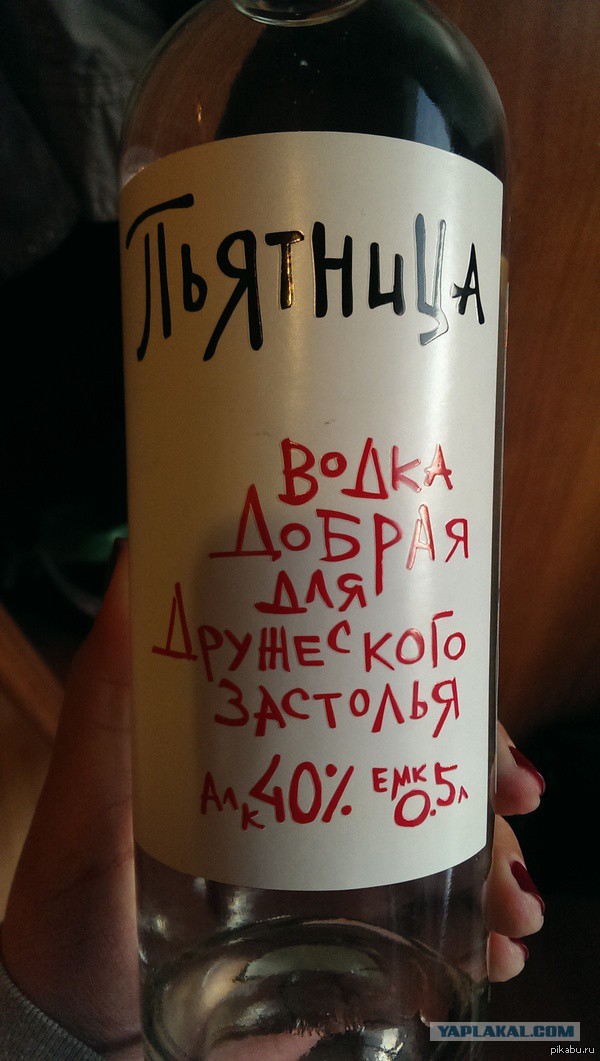 ПЬЯТНИЦА
ВОДКА
ДОБРАЯ
ДЛЯ
ДРУЖЕСКОГО
ЗАСТОЛЬЯ
Алк 40% ЕМК 0.5л
YAPLAKAL.COM
pikabu.ru